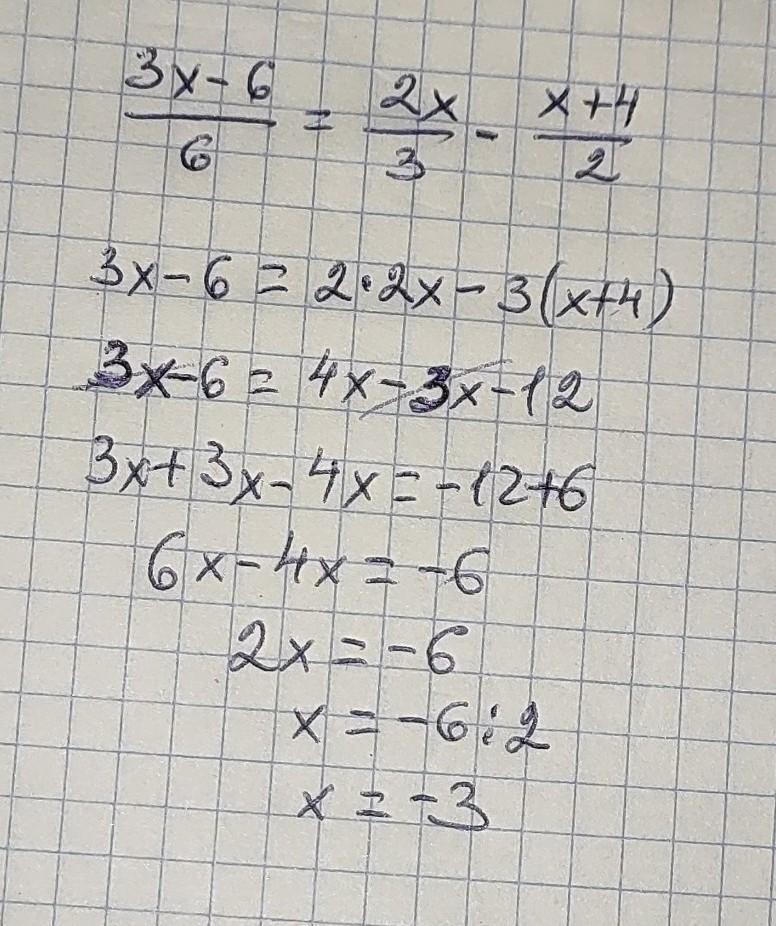 (3x-6)/6 = 2x/3 - (x+4)/2
3x-6 = 2·2x-3(x+4)
3x-6 = 4x-3x-12
3x+3x-4x=-12+6
6x-4x=-6
2x=-6
x=-6:2
x=-3